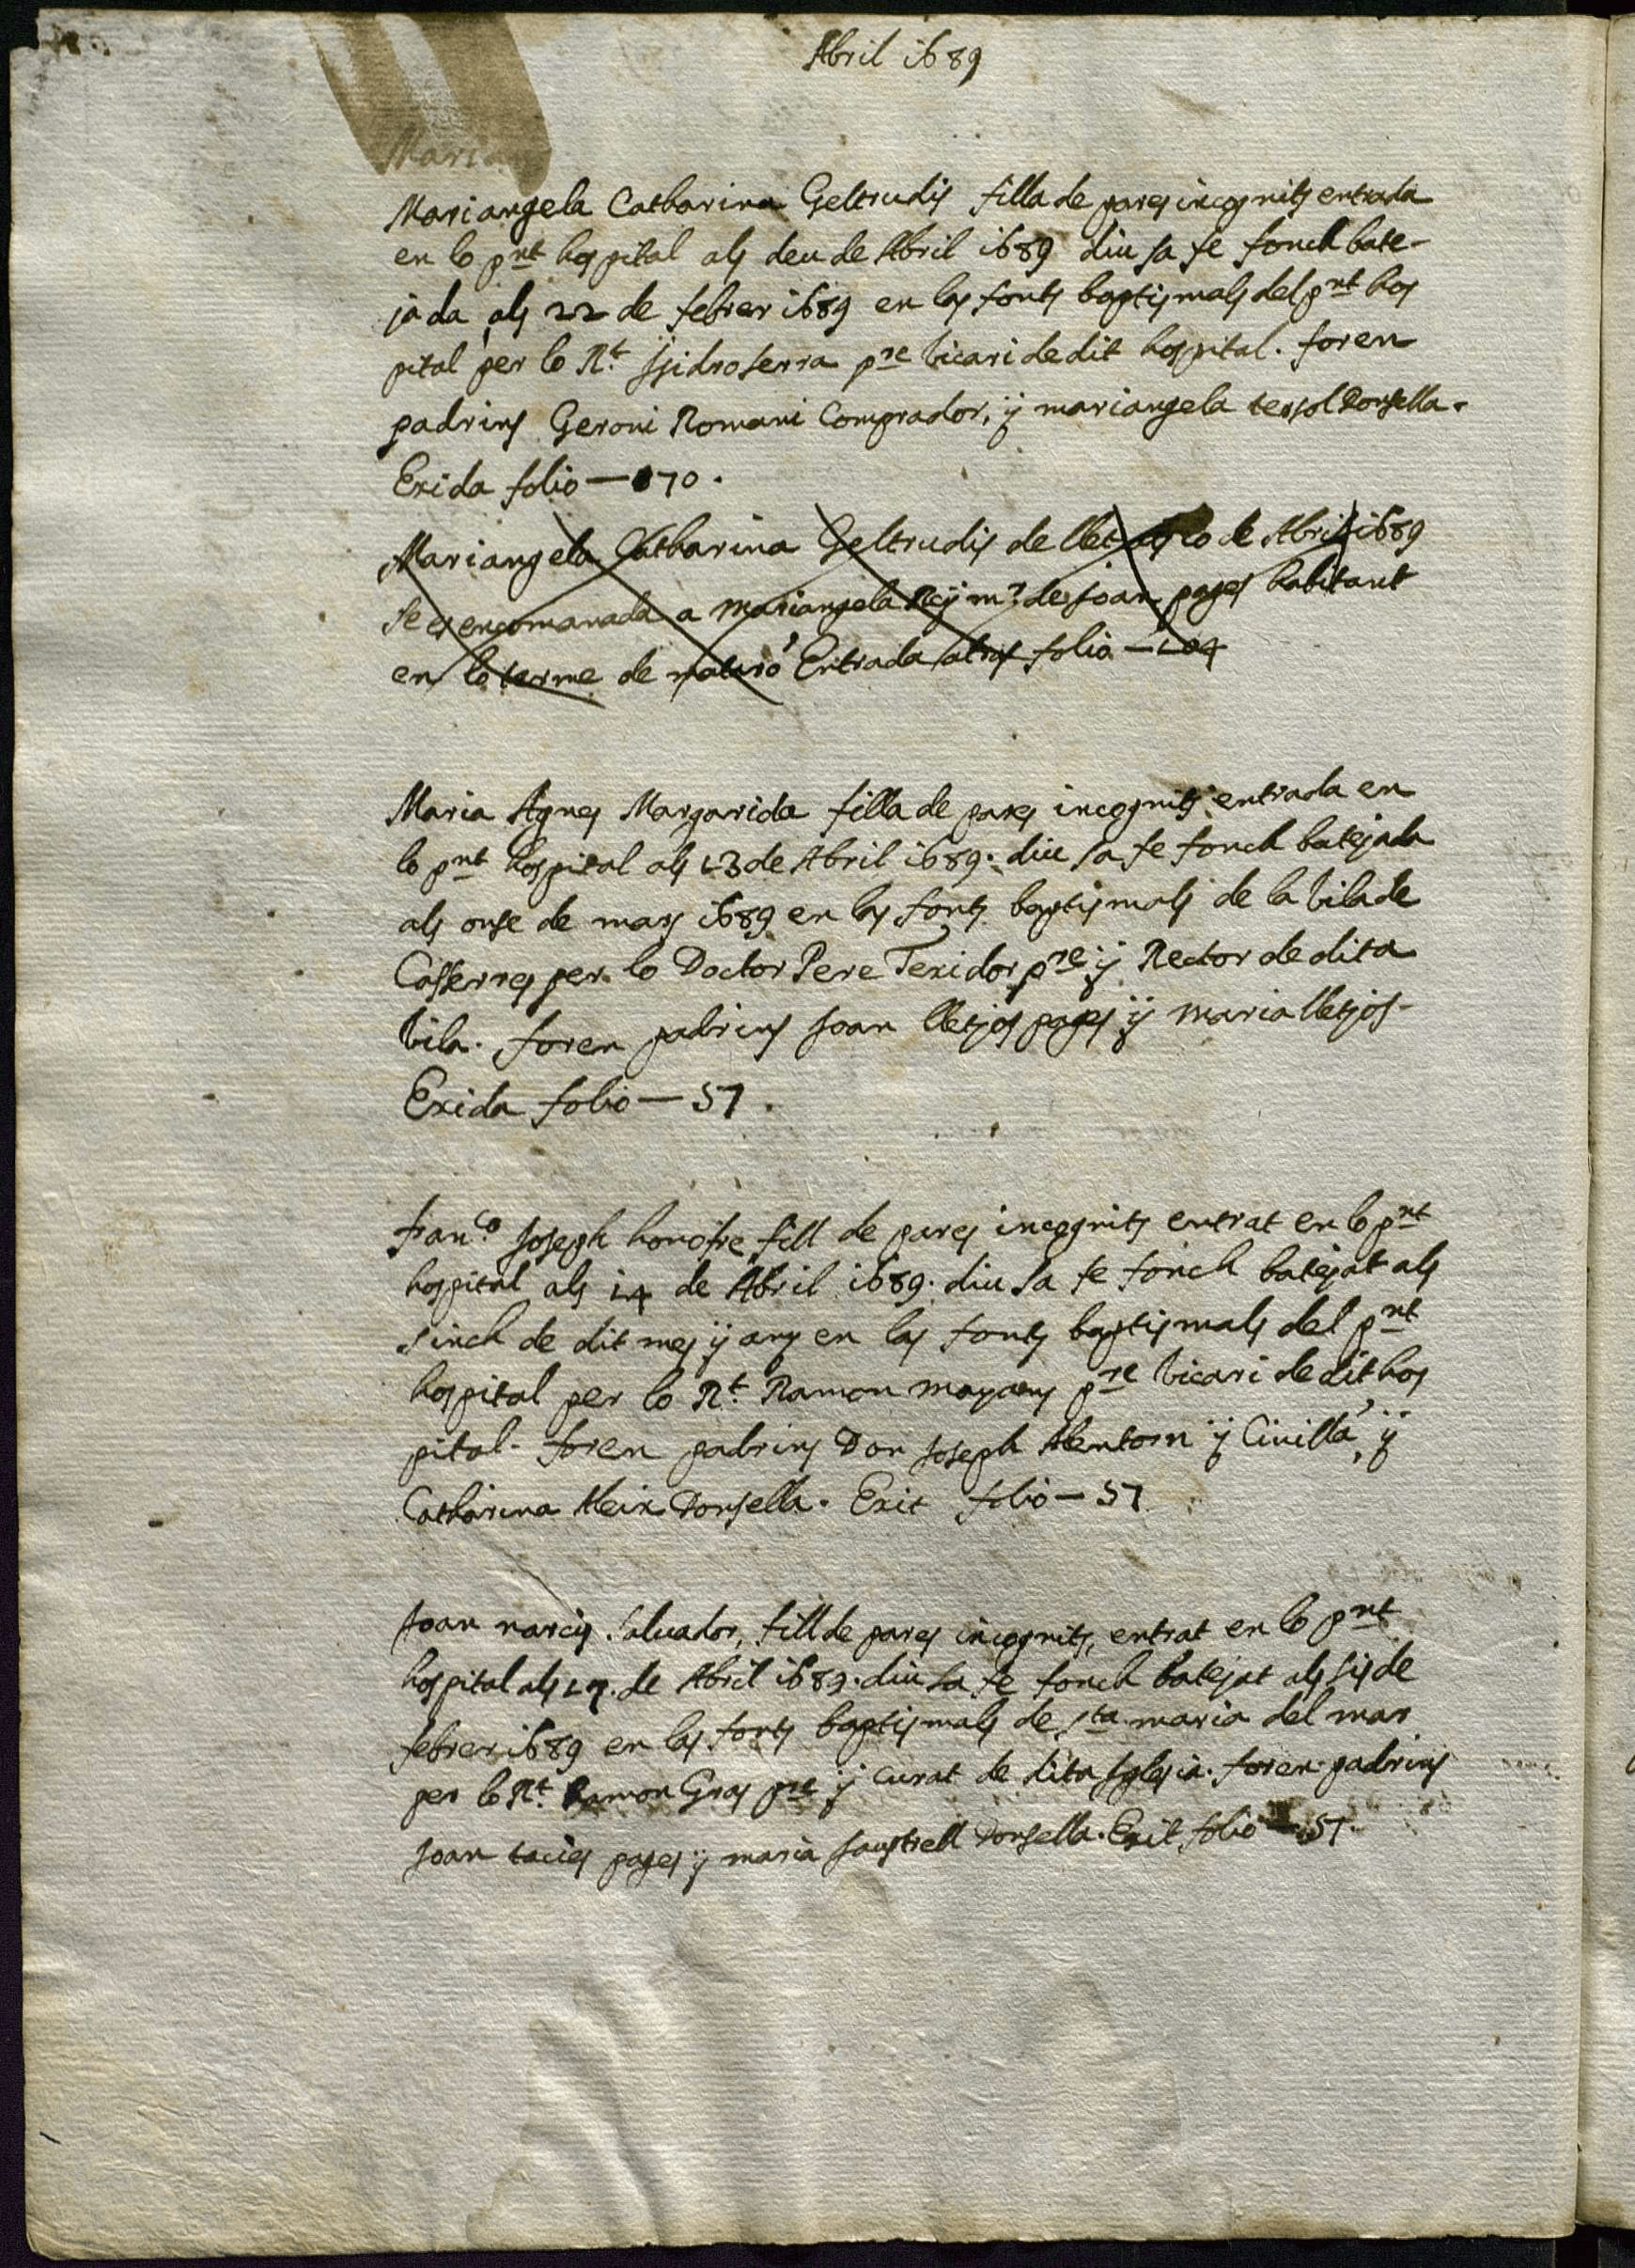 Abril 1689
Maria
Mariangela Catharina Geltrudis filla de pares incognits entrada
en lo pnt hospital als deu de Abril 1689 diu sa fe fonch bate-
jada als 22 de febrer 1689 en las fonts baptismals del pnt hos
pital per lo Rt. Isidro serra pre vicari de dit hospital. foren
padrins Geroni Romani Comprador, ÿ mariangela Donsella.
Exida folio — 70.
Mariangela Catharina Geltrudis de llet als 20 de Abril 1689
se es encomanada a Mariangela Reÿ mr. de Joan pages habitant
en lo terme de mataró Entrada atras folio — 104
Maria Agnes Margarida filla de pares incognits entrada en
lo pnt hospital als 13 de Abril 1689. diu sa fe fonch batejada
als onse de mars 1689 en las fonts baptismals de la Vila de
Casserres per lo Doctor Pere Texidor pre ÿ Rector de dita
Vila. foren padrins Joan lletjos pages ÿ maria lletjos-
Exida folio — 57.
Franco. Joseph honofre fill de pares incognits entrat en lo pnt
hospital als 14 de Abril 1689. diu sa fe fonch batejat als
sinch de dit mes ÿ anÿ en las fonts baptismals del pnt
hospital per lo Rt. Ramon mayans pre vicari de dit hos
pital. foren padrins Don Joseph Alentorn ÿ Civillá, ÿ
Catharina Aleix Donsella. Exit folio — 57
Joan narcis Salvador, fill de pares incognits, entrat en lo pnt
hospital als 17. de Abril 1689. diu sa fe fonch batejat als sis de
febrer 1689 en las fonts baptismals de sta maria del mar
per lo Rt. Ramon Gras pre ÿ curat de dita Iglesia. foren padrins
Joan pages ÿ maria Donsella. Exit folio — 57.